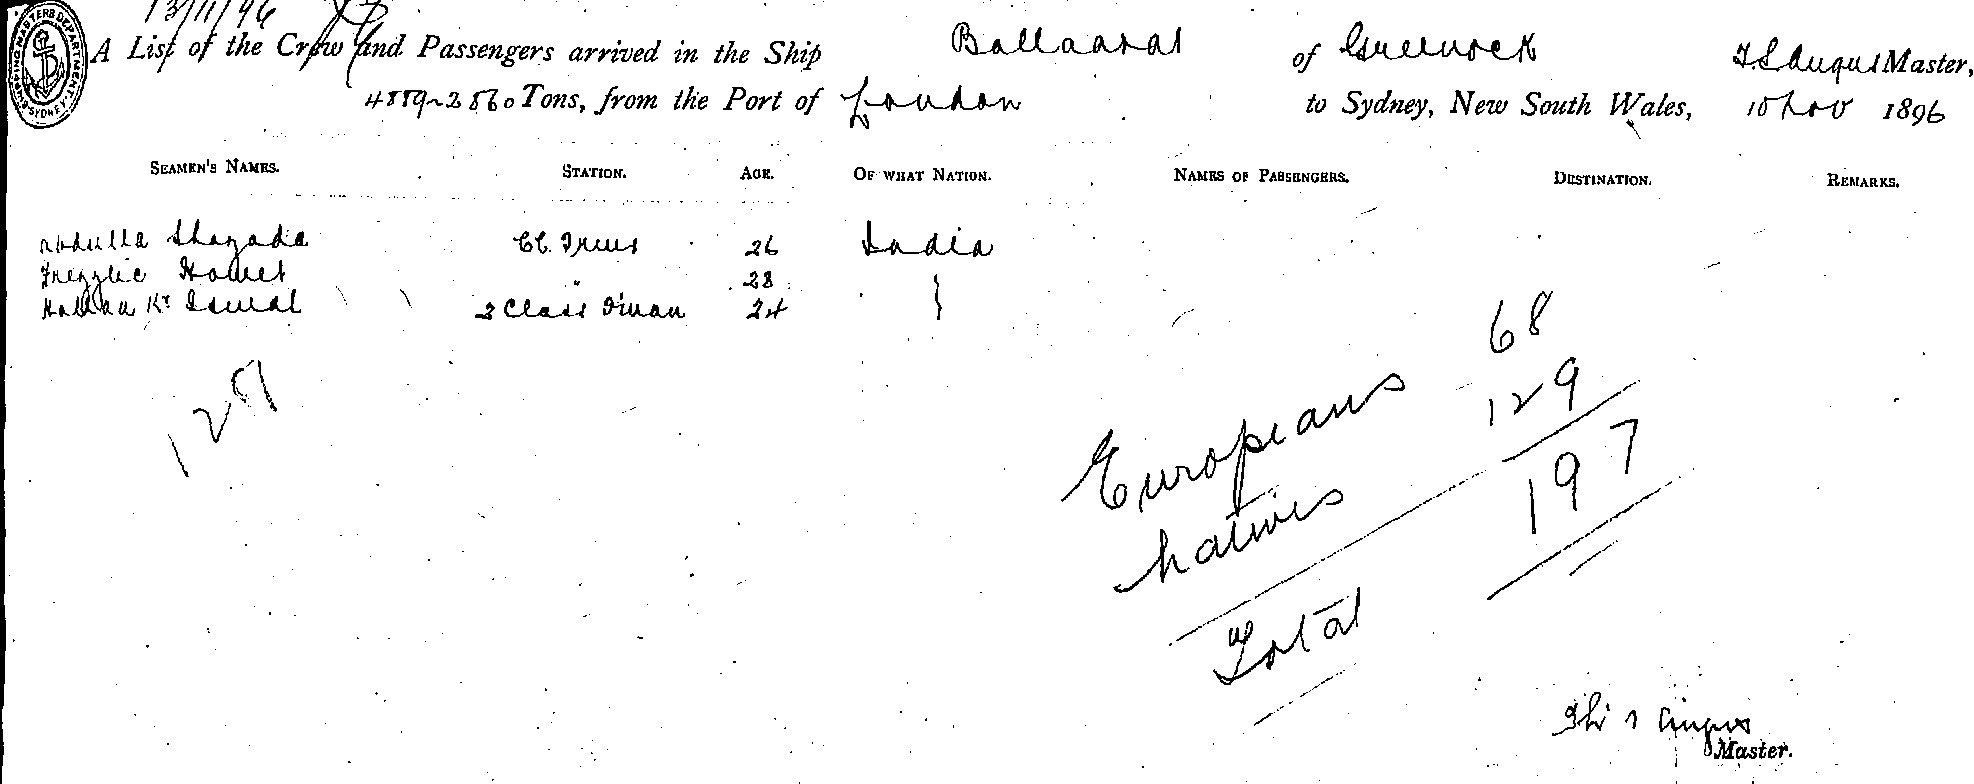 13/11/96
SHIPPING MASTERS DEPARTMENT SYDNEY
A List of the Crew and Passengers arrived in the Ship Ballaarat of Greenock T.S. Angus Master,
4889~2860 Tons, from the Port of London to Sydney, New South Wales, 10 Nov 1896
SEAMEN'S NAMES. STATION. AGE. OF WHAT NATION. NAMES OF PASSENGERS. DESTINATION. REMARKS.
Abdulla Shazada 26 India
28
2 Class 24
128
Europeans 68
Natives 129
Total 197
Angus
Master.